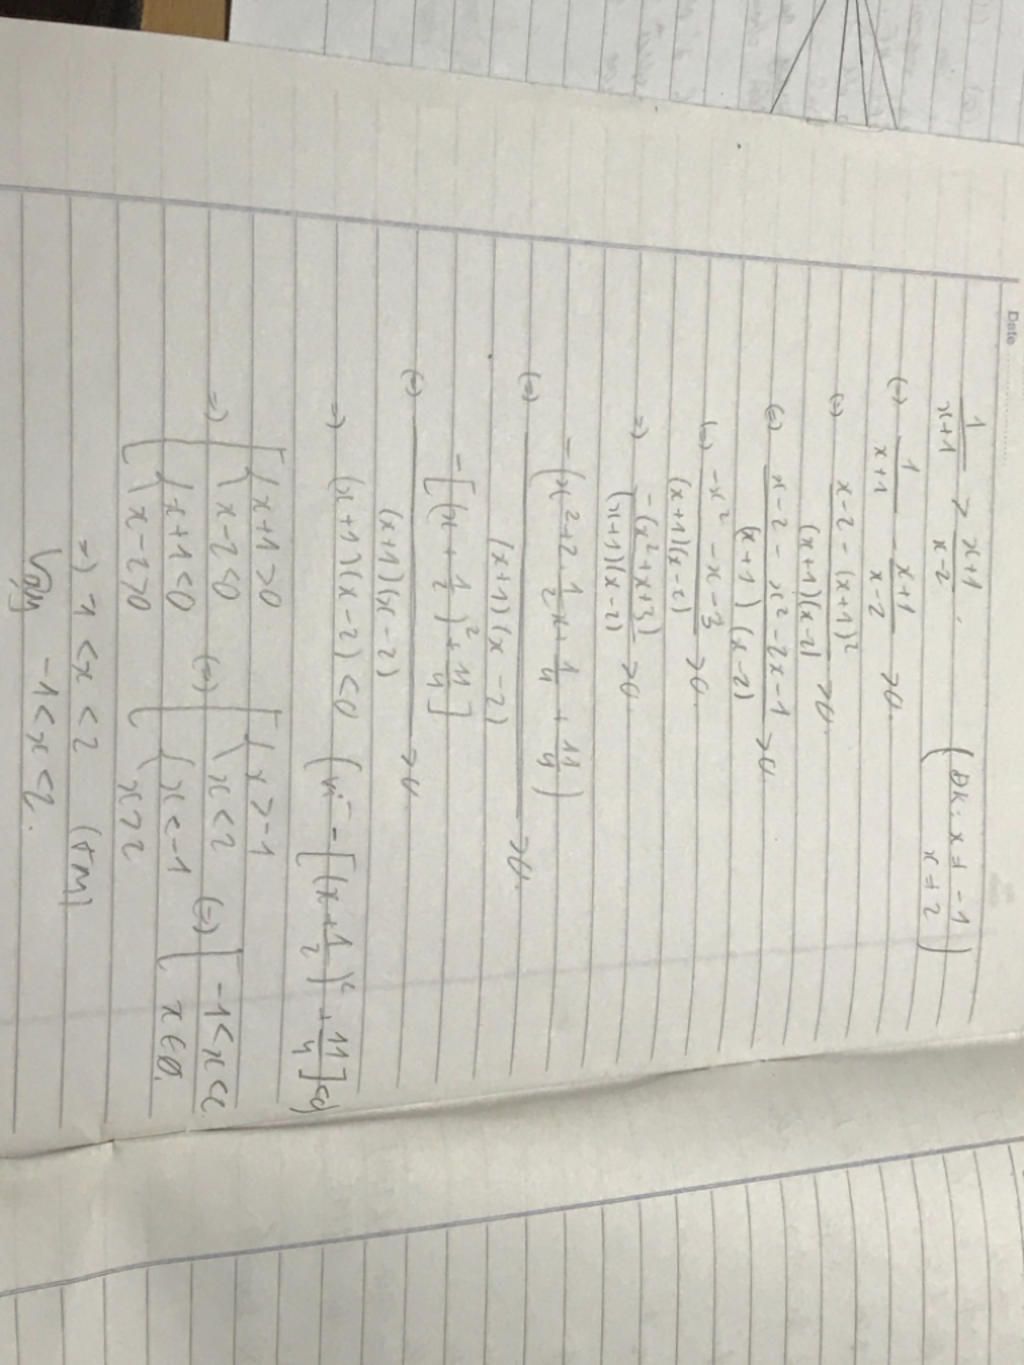 Date
1/(x+1) > (x+1)/(x-2). (ĐK: x ≠ -1
x ≠ 2)
(=) 1/(x+1) - (x+1)/(x-2) > 0.
(=) (x-2-(x+1)²)/((x+1)(x-2)) > 0.
(=) (x-2-x²-2x-1)/((x+1)(x-2)) > 0
(=) (-x²-x-3)/((x+1)(x-2)) > 0.
=) (-(x²+x+3))/((x+1)(x-2)) > 0.
(=) (-(x²+2.1/2x+1/4+11/4))/((x+1)(x-2)) > 0.
(=) (-[(x+1/2)²+11/4])/((x+1)(x-2)) > 0
=) (x+1)(x-2) < 0 (vì -[(x+1/2)²+11/4] < 0)
=) [ { x+1 > 0
x-2 < 0
{ x+1 < 0
x-2 > 0
(=) [ { x > -1
x < 2
{ x < -1
x > 2
(=) [ -1 < x < 2
x ∈ ∅.
=) -1 < x < 2 (tm)
Vậy -1 < x < 2.